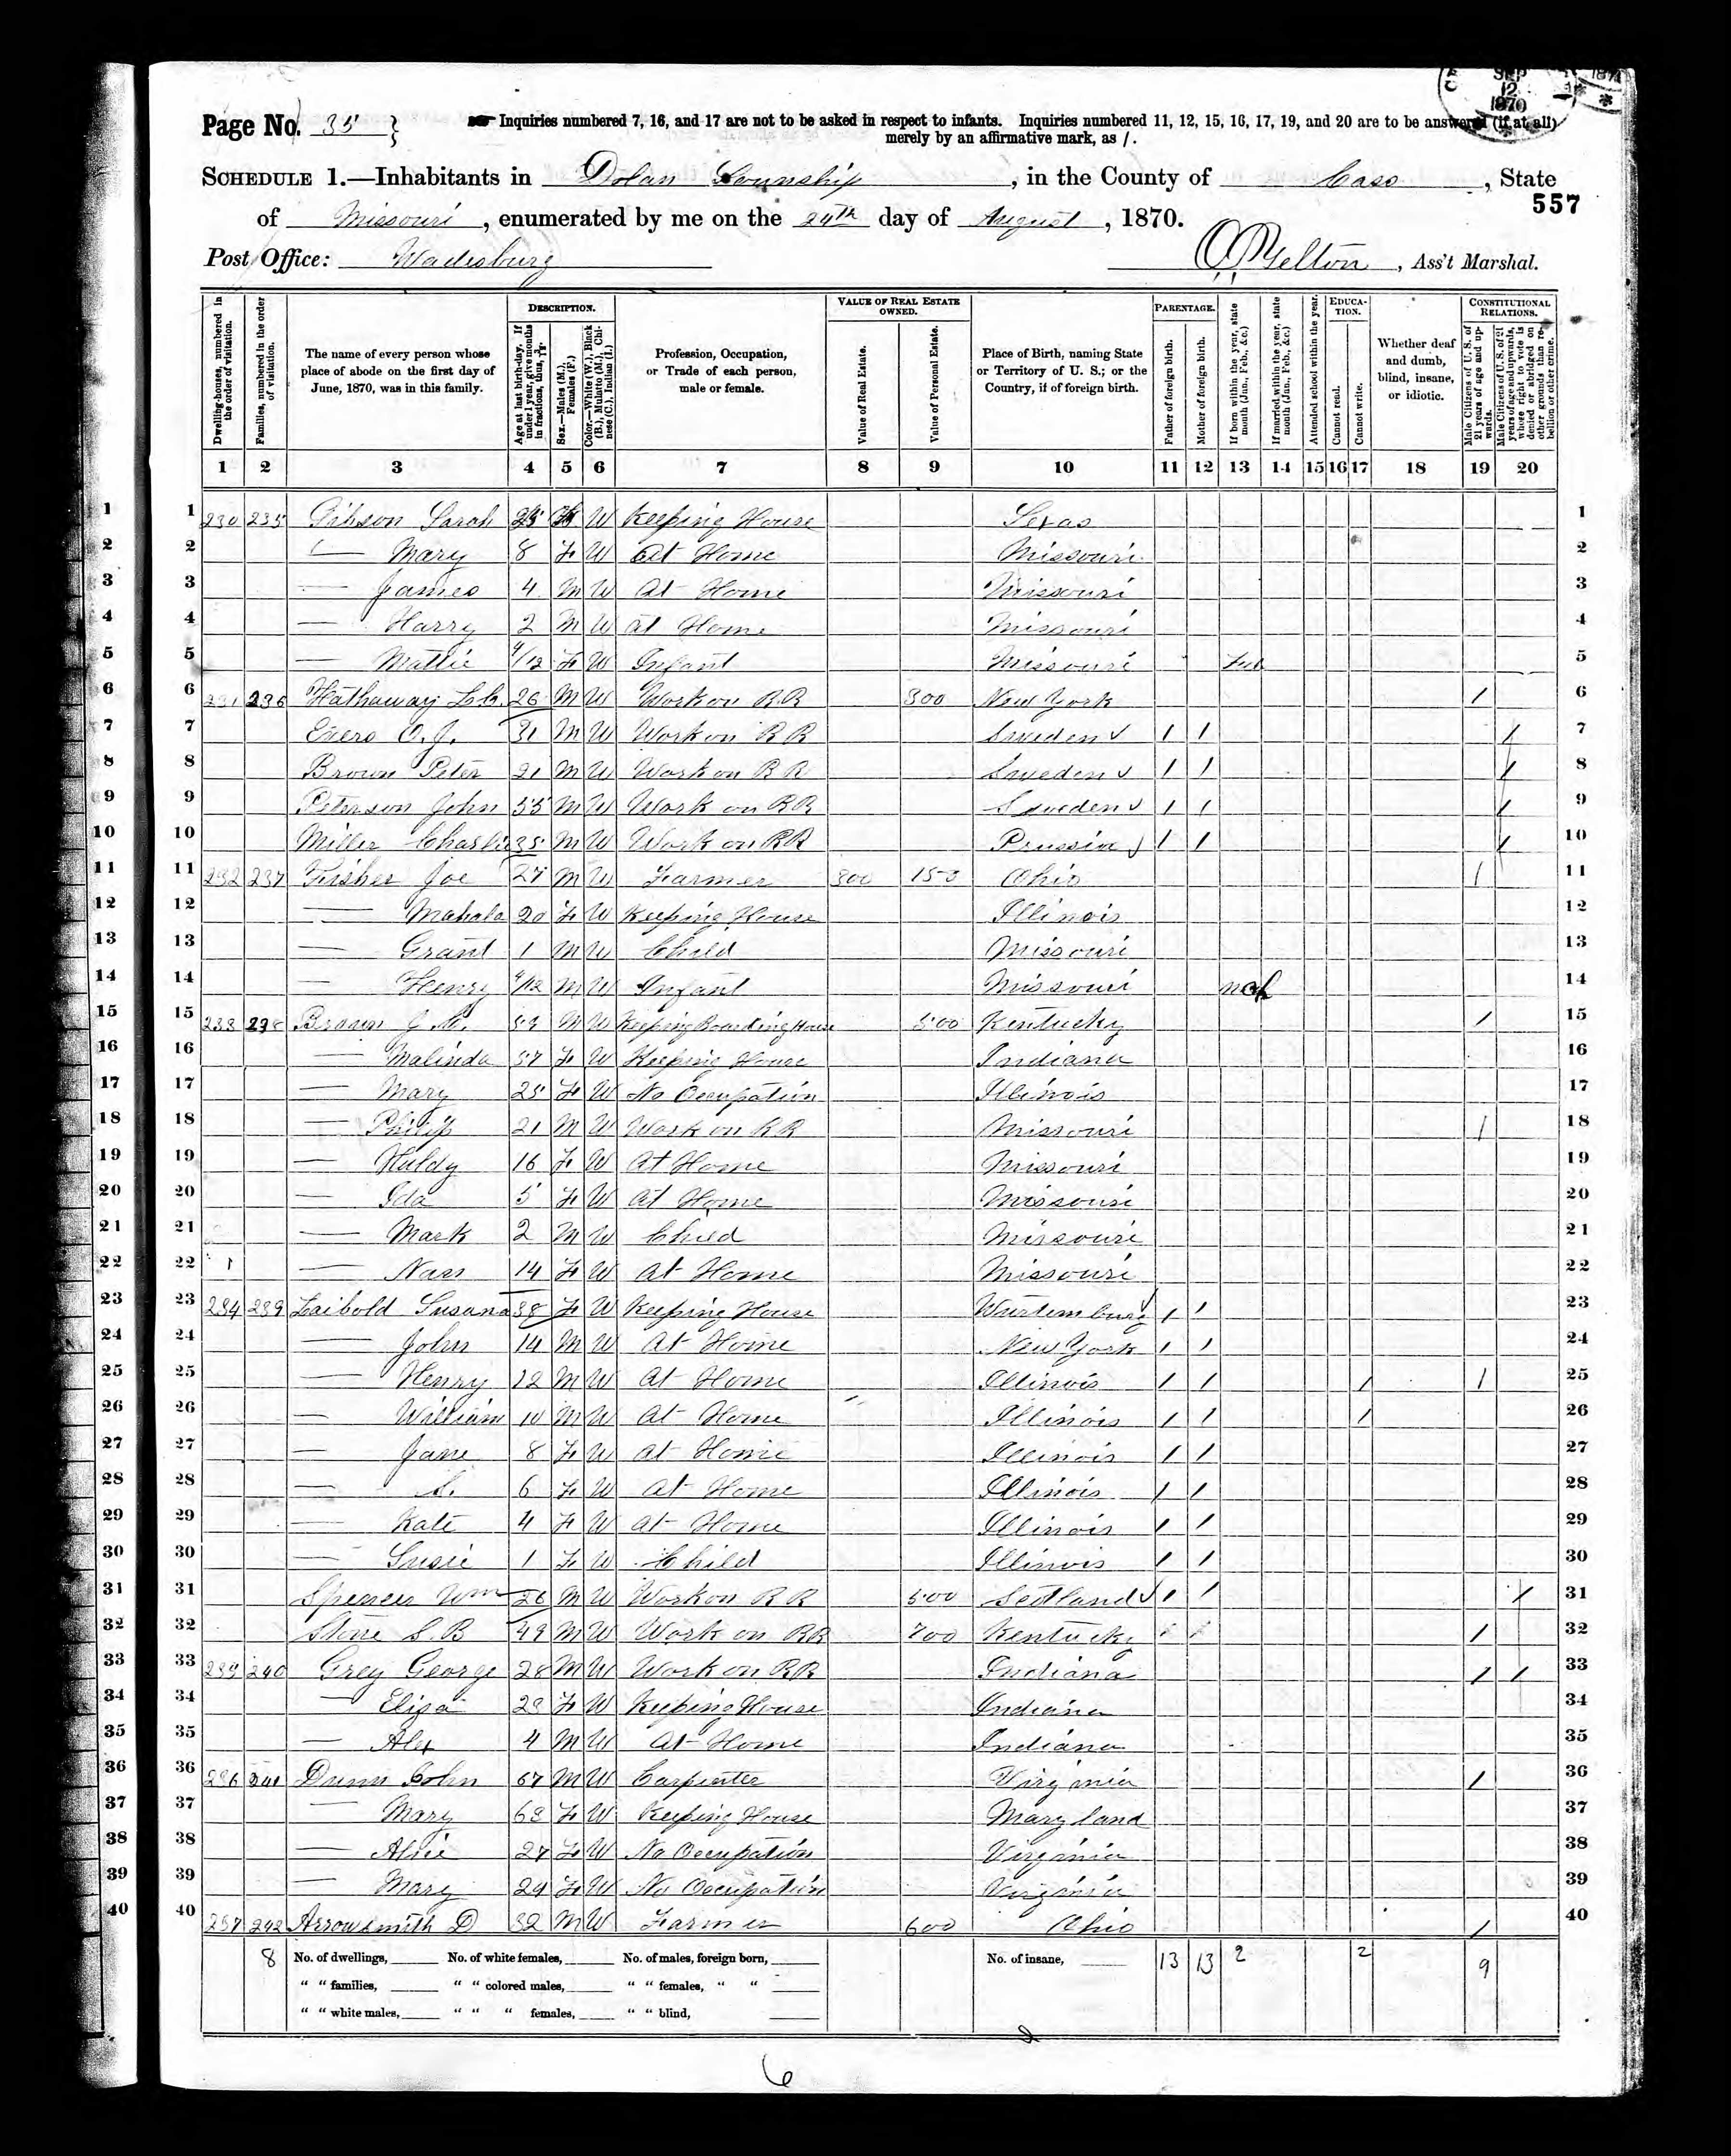 SEP 12 1870
Page No. 35 } Inquiries numbered 7, 16, and 17 are not to be asked in respect to infants. Inquiries numbered 11, 12, 15, 16, 17, 19, and 20 are to be answered (if at all)
merely by an affirmative mark, as /.
SCHEDULE 1.—Inhabitants in Dolan Township, in the County of Cass, State
557
of Missouri, enumerated by me on the 24th day of August, 1870.
Post Office: Wadesburg Yelton, Ass't Marshal.
Dwelling-houses, numbered in the order of visitation.
Families, numbered in the order of visitation.
The name of every person whose place of abode on the first day of June, 1870, was in this family.
DESCRIPTION.
Age at last birth-day. If under 1 year, give months in fractions, thus, 3/12.
Sex.—Males (M.), Females (F.)
Color.—White (W.), Black (B.), Mulatto (M.), Chinese (C.), Indian (I.)
Profession, Occupation, or Trade of each person, male or female.
VALUE OF REAL ESTATE OWNED.
Value of Real Estate.
Value of Personal Estate.
Place of Birth, naming State or Territory of U. S.; or the Country, if of foreign birth.
PARENTAGE.
Father of foreign birth.
Mother of foreign birth.
If born within the year, state month (Jan., Feb., &c.)
If married within the year, state month (Jan., Feb., &c.)
Attended school within the year.
EDUCATION.
Cannot read.
Cannot write.
Whether deaf and dumb, blind, insane, or idiotic.
CONSTITUTIONAL RELATIONS.
Male Citizens of U. S. of 21 years of age and upwards.
Male Citizens of U. S. of 21 years of age and upwards, whose right to vote is denied or abridged on other grounds than rebellion or other crime.
1 2 3 4 5 6 7 8 9 10 11 12 13 14 15 16 17 18 19 20
1 1 230 235 Gibson Sarah 25 F W Keeping House Texas 1
2 2 — Mary 8 F W At Home Missouri 2
3 3 — James 4 M W At Home Missouri 3
4 4 — Harry 2 M W At Home Missouri 4
5 5 — Mattie /12 F W Infant Missouri Feb 5
6 6 231 236 Hathaway 26 M W Work on RR 300 New York / 6
7 7 O. J. 31 M W Work on RR Sweden ✓ / / / 7
8 8 Brown Peter 21 M W Work on RR Sweden ✓ / / / 8
9 9 Peterson John 55 M W Work on RR Sweden ✓ / / / 9
10 10 Miller Charlie 35 M W Work on RR Prussia ✓ / / / 10
11 11 232 237 Fisher Joe 27 M W Farmer 300 150 Ohio / 11
12 12 — Mahala 20 F W Keeping House Illinois 12
13 13 — Grant 1 M W Child Missouri 13
14 14 — Henry /12 M W Infant Missouri 14
15 15 233 238 Brown 59 M W Keeping Boarding House 500 Kentucky / 15
16 16 — Malinda 57 F W Keeping House Indiana 16
17 17 — Mary 25 F W No Occupation Illinois 17
18 18 — Philip 21 M W Work on RR Missouri / 18
19 19 — Huldy 16 F W At Home Missouri 19
20 20 — Ida 5 F W At Home Missouri 20
21 21 — Mark 2 M W Child Missouri 21
22 22 — Nan 14 F W At Home Missouri 22
23 23 234 239 Laibold Susana 38 F W Keeping House Wurtemburg ✓ / / 23
24 24 — John 14 M W At Home New York / / 24
25 25 — Henry 12 M W At Home Illinois / / / / 25
26 26 — William 10 M W At Home Illinois / / / 26
27 27 — Jane 8 F W At Home Illinois / / 27
28 28 — S. 6 F W At Home Illinois / / 28
29 29 — Kate 4 F W At Home Illinois / / 29
30 30 — Susie 1 F W Child Illinois / / 30
31 31 Spencer Wm 26 M W Work on RR 500 Scotland ✓ / / / 31
32 32 Stone S. B 49 M W Work on RR 700 Kentucky / 32
33 33 235 240 Grey George 28 M W Work on RR Indiana / / 33
34 34 — Eliza 28 F W Keeping House Indiana 34
35 35 — Alex 4 M W At Home Indiana 35
36 36 236 241 Dunn John 67 M W Carpenter Virginia / 36
37 37 — Mary 68 F W Keeping House Maryland 37
38 38 — Alsie 27 F W No Occupation Virginia 38
39 39 — Mary 24 F W No Occupation Virginia 39
40 40 237 242 Arrowsmith D 32 M W Farmer 600 Ohio / 40
8 No. of dwellings, No. of white females, No. of males, foreign born, No. of insane, 13 13 2 2 9
“ “ families, “ “ colored males, “ “ females, “ “
“ “ white males, “ “ “ females, “ “ blind,
6